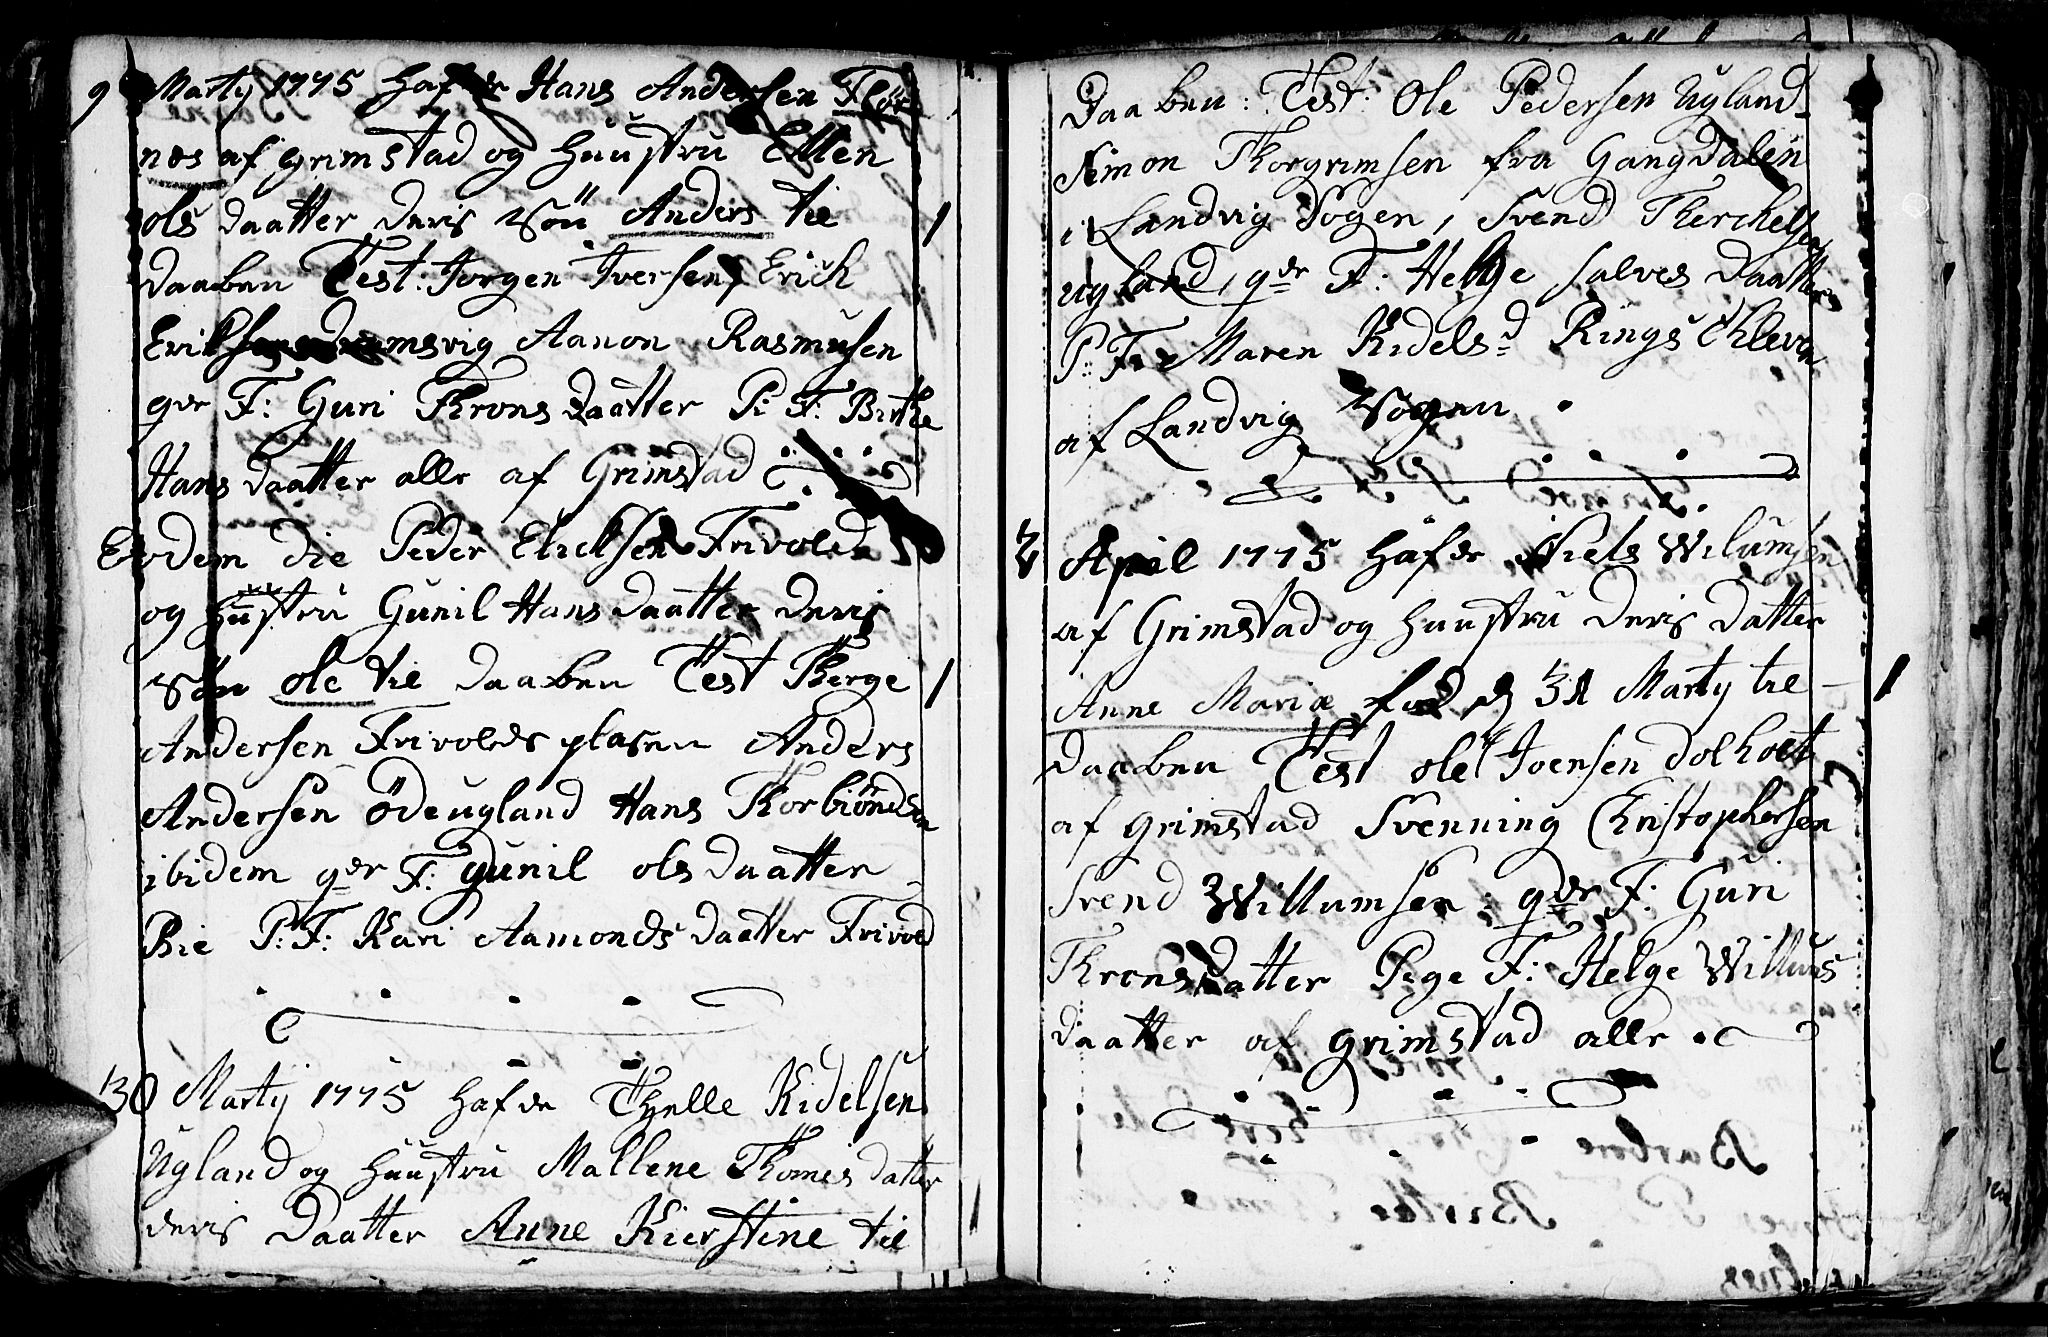 9 Martÿ 1775 hafde Hans Andersen Thör
næs af Grimstad og Huustru Ellen
ols daatter deris Søn Anders til
daaben Test: Jørgen Iversen, Erich
Eriksen dramsvig Aanon Rasmusen
qvr F: Guri Throns daatter P: F: Birthe
Hans daatter alle af Grimstad
Eodem die Peder Ericksen Frivold
og Huustru Gunil Hans daatter deris
Søn ole til daaben Test Therge
Andersen Frivolds plasen Anders
Andersen Ödeugland Hans Thorbiönsen
ibidem qvr F: gunil ols daatter
Bie P: F: Kari Aamonds daatter Frivold
130 Martij 1775 hafde Thrlle Kidelsen
Ugland og Huustru Mallene Thomes datter
deris Daatter Anne Kierstine til
Daaben: Test: Ole Pedersen Ugland
Simon Thorgrimsen fra Gangdalen
i Landvig Sogen, Svend Therchelsen
Ugland, qvr F: Helge Salves daatter
P: F: Maren Kidelsd Rings Kleven
af Landvig Sogen
2 April 1775 hafde Niels Wilumsen
af Grimstad og Huustru deris datter
Anne Maria fød d 31 Martÿ til
Daaben Test ole Joensen dolholt
af grimstad Svenning Christophersen
Svend Willumsen: qvr F: Guri
Throns datter Pige F: Helge Willums
daatter af grimstad alle